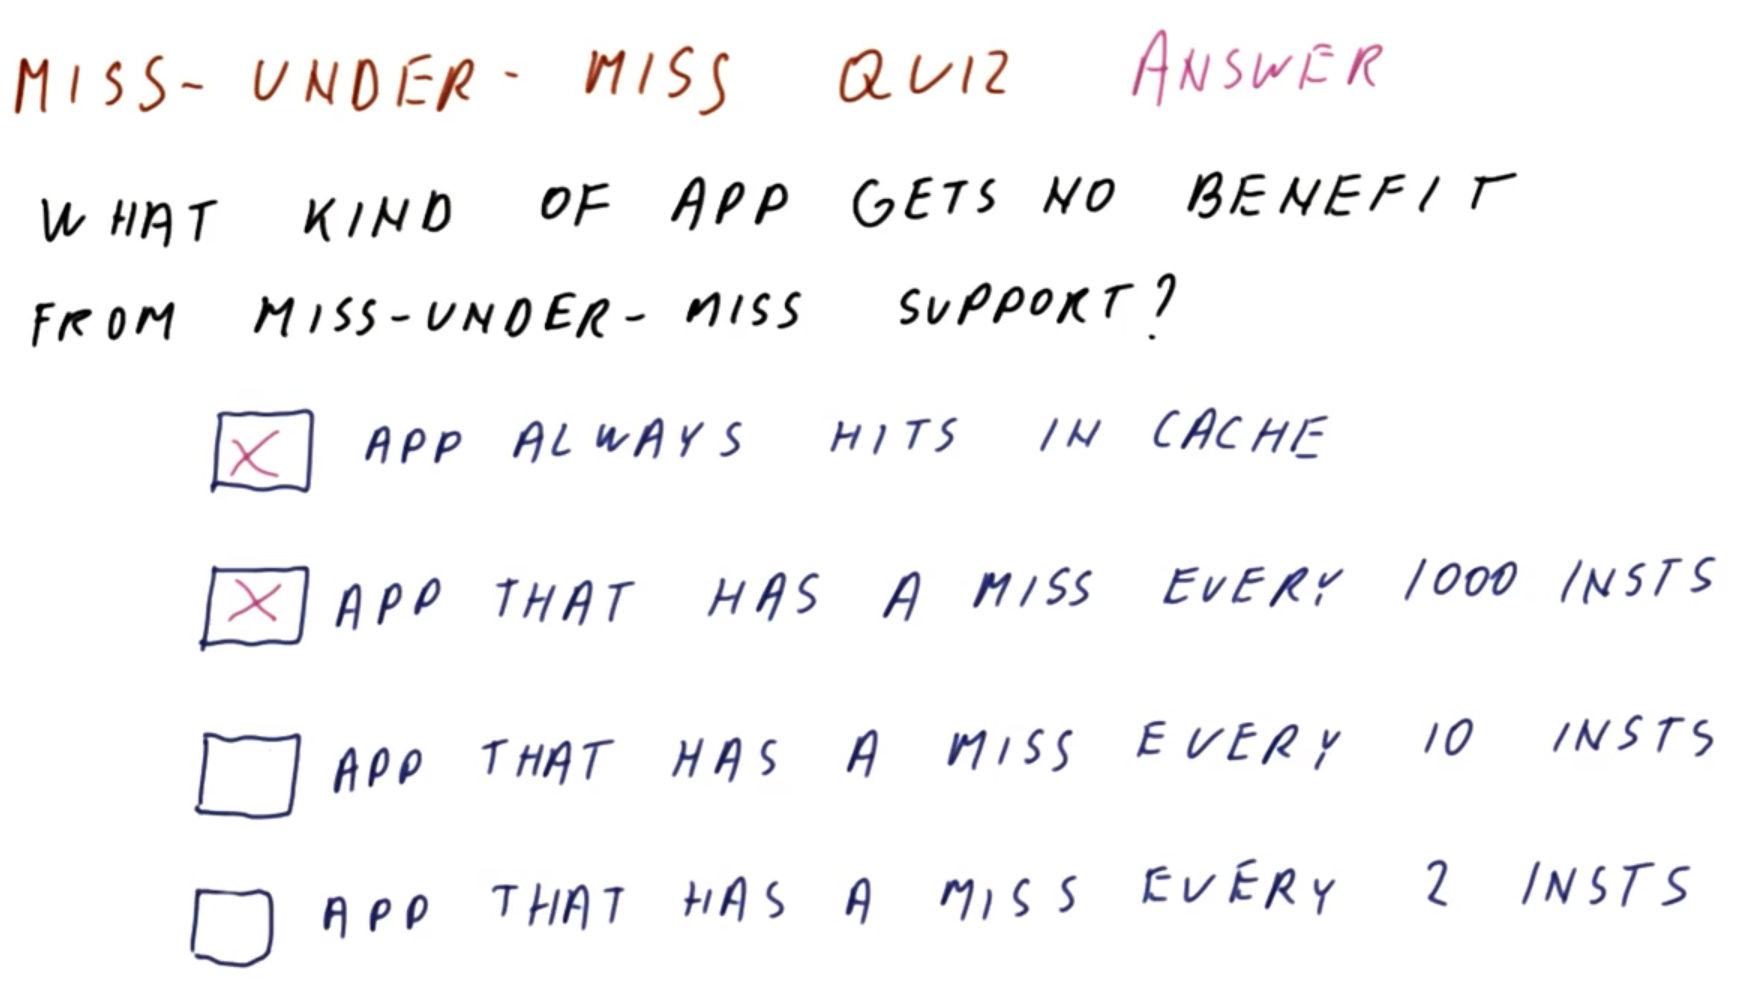 MISS-UNDER-MISS QUIZ ANSWER
WHAT KIND OF APP GETS NO BENEFIT
FROM MISS-UNDER-MISS SUPPORT?
X APP ALWAYS HITS IN CACHE
X APP THAT HAS A MISS EVERY 1000 INSTS
APP THAT HAS A MISS EVERY 10 INSTS
APP THAT HAS A MISS EVERY 2 INSTS